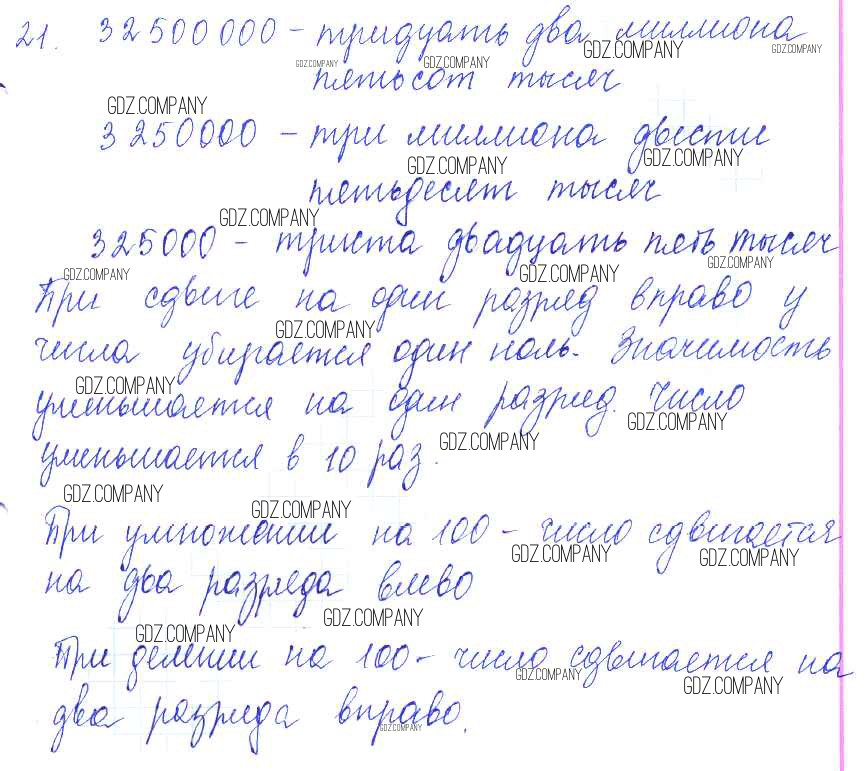 21. 32500000 - тридцать два миллиона
GDZ.COMPANY GDZ.COMPANY
GDZ.COMPANY GDZ.COMPANY
пятьсот тысяч
GDZ.COMPANY
3250000 - три миллиона двести
GDZ.COMPANY GDZ.COMPANY
пятьдесят тысяч
GDZ.COMPANY
325000 - триста двадцать пять тысяч
GDZ.COMPANY GDZ.COMPANY GDZ.COMPANY
При сдвиге на один разряд вправо у
GDZ.COMPANY
числа убирается один ноль. Значимость
GDZ.COMPANY
уменьшается на один разряд. Число
GDZ.COMPANY
GDZ.COMPANY
уменьшается в 10 раз.
GDZ.COMPANY
GDZ.COMPANY
При умножении на 100 - число сдвигается
GDZ.COMPANY GDZ.COMPANY
на два разряда влево
GDZ.COMPANY
GDZ.COMPANY
При делении на 100 - число сдвигается на
GDZ.COMPANY GDZ.COMPANY
два разряда вправо.
GDZ.COMPANY